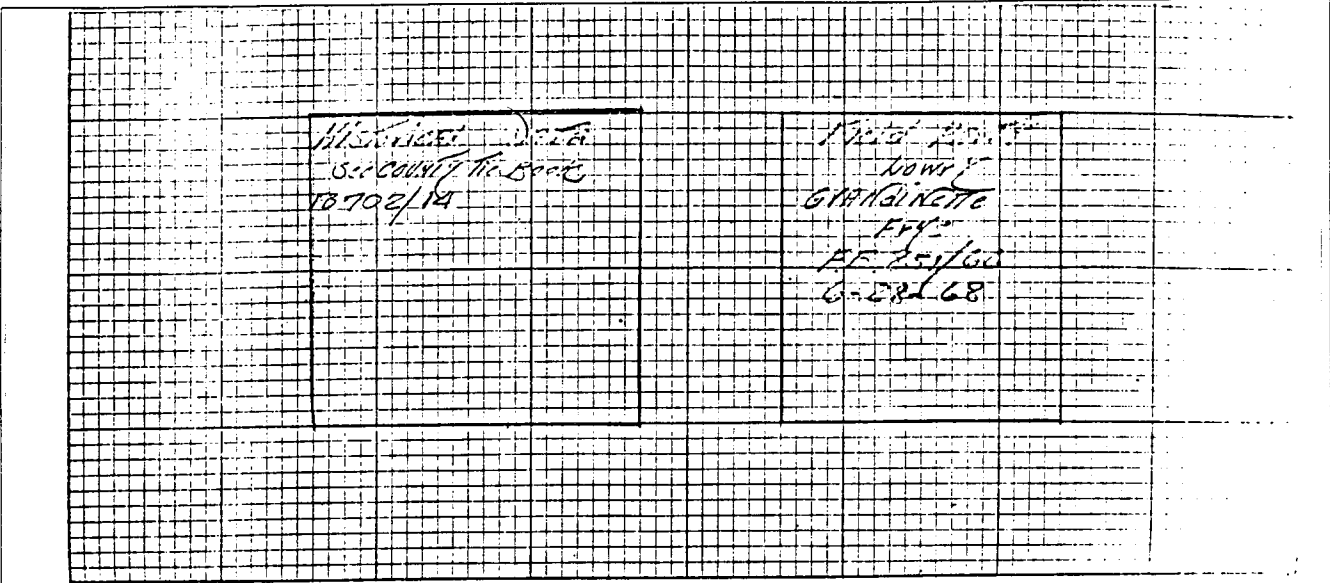 HISTORICAL DATA
See COUNTY Tie Book
TB 702/14
Field
Lowry
GRANDINETTE
Frye
F.F. 251/60
6-28-68